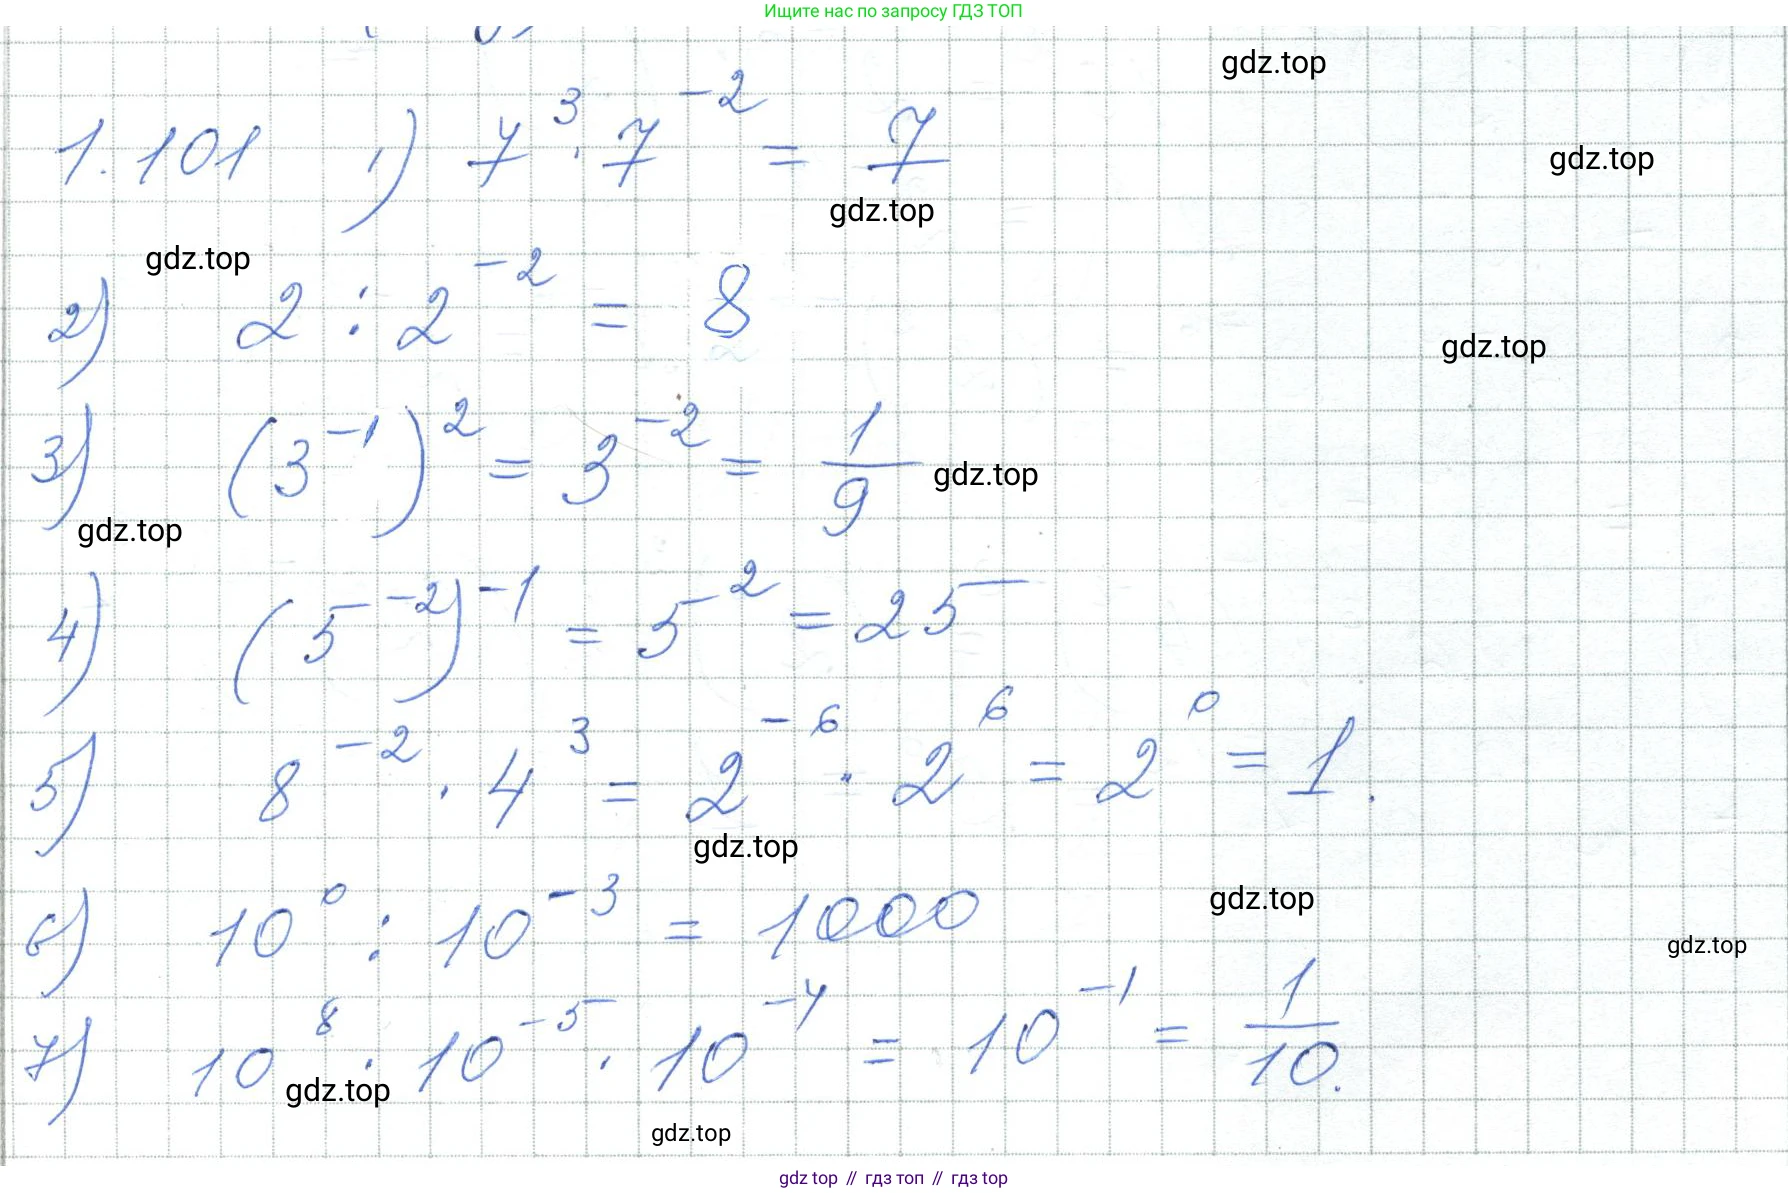 Ищите нас по запросу ГДЗ ТОП
gdz.top
1.101 1) 7³ · 7⁻² = 7
gdz.top
gdz.top
gdz.top
2) 2 : 2⁻² = 8
gdz.top
3) (3⁻¹)² = 3⁻² = 1/9
gdz.top
gdz.top
4) (5⁻²)⁻¹ = 5² = 25
5) 8⁻² · 4³ = 2⁻⁶ · 2⁶ = 2⁰ = 1.
gdz.top
gdz.top
6) 10⁰ : 10⁻³ = 1000
gdz.top
7) 10⁸ · 10⁻⁵ · 10⁻⁴ = 10⁻¹ = 1/10.
gdz.top
gdz.top
gdz top // гдз топ // гдз top